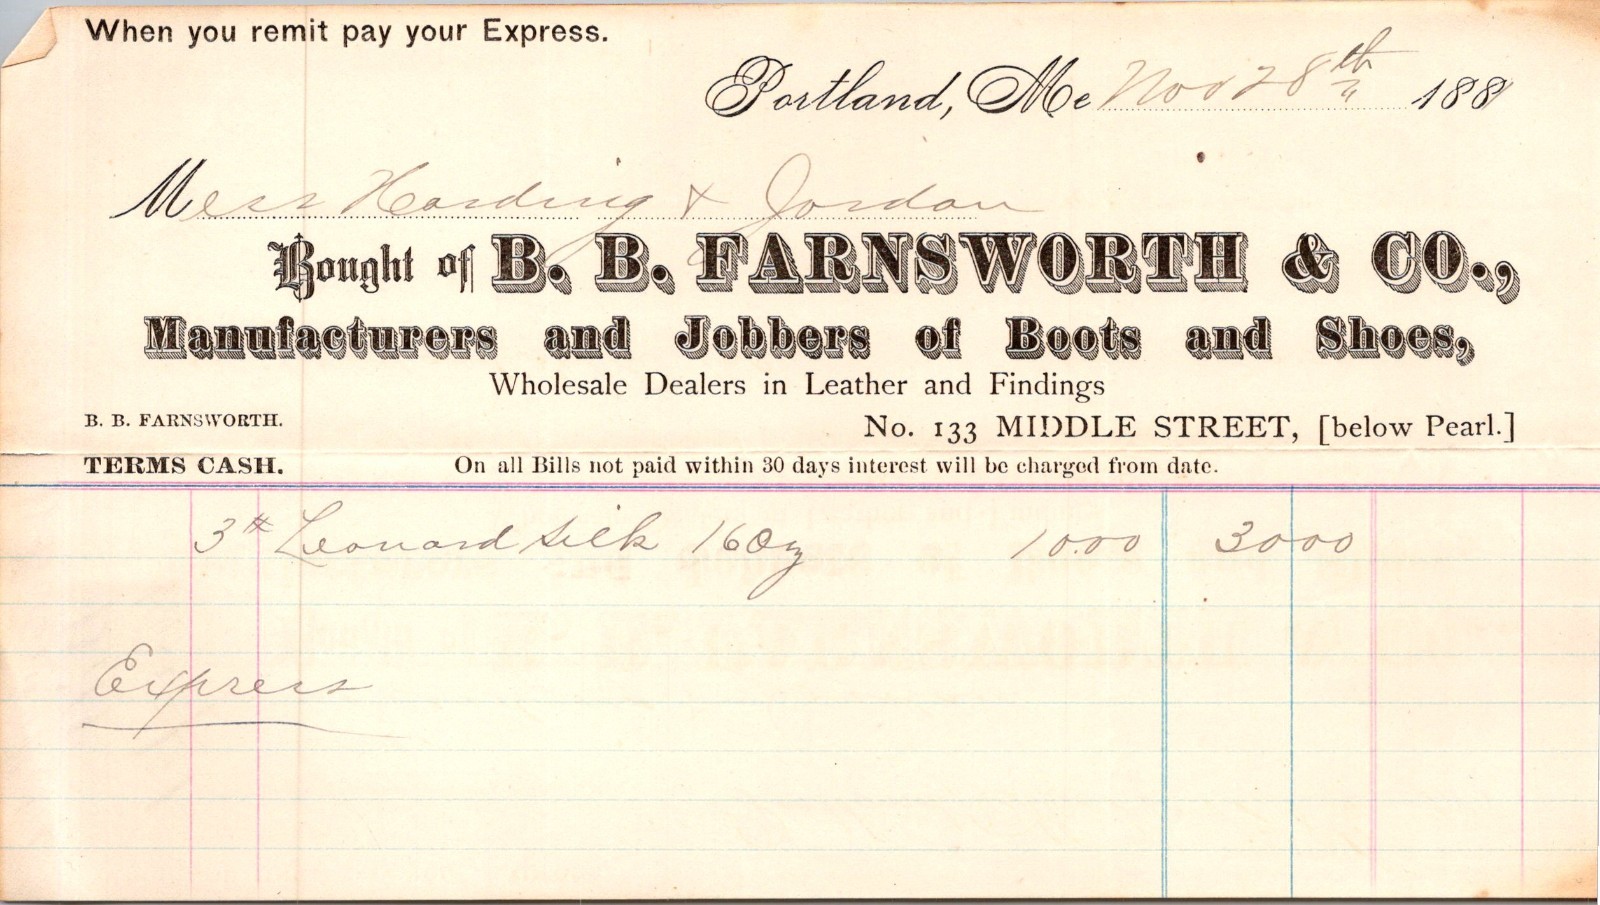 When you remit pay your Express.
Portland, Me Nov 28th 1881
Mess Harding & Jordan
Bought of B. B. FARNSWORTH & CO.,
Manufacturers and Jobbers of Boots and Shoes,
Wholesale Dealers in Leather and Findings
B. B. FARNSWORTH. No. 133 MIDDLE STREET, [below Pearl.]
TERMS CASH. On all Bills not paid within 30 days interest will be charged from date.
3 # Leonard silk 16 Oz 10.00 3000
Express